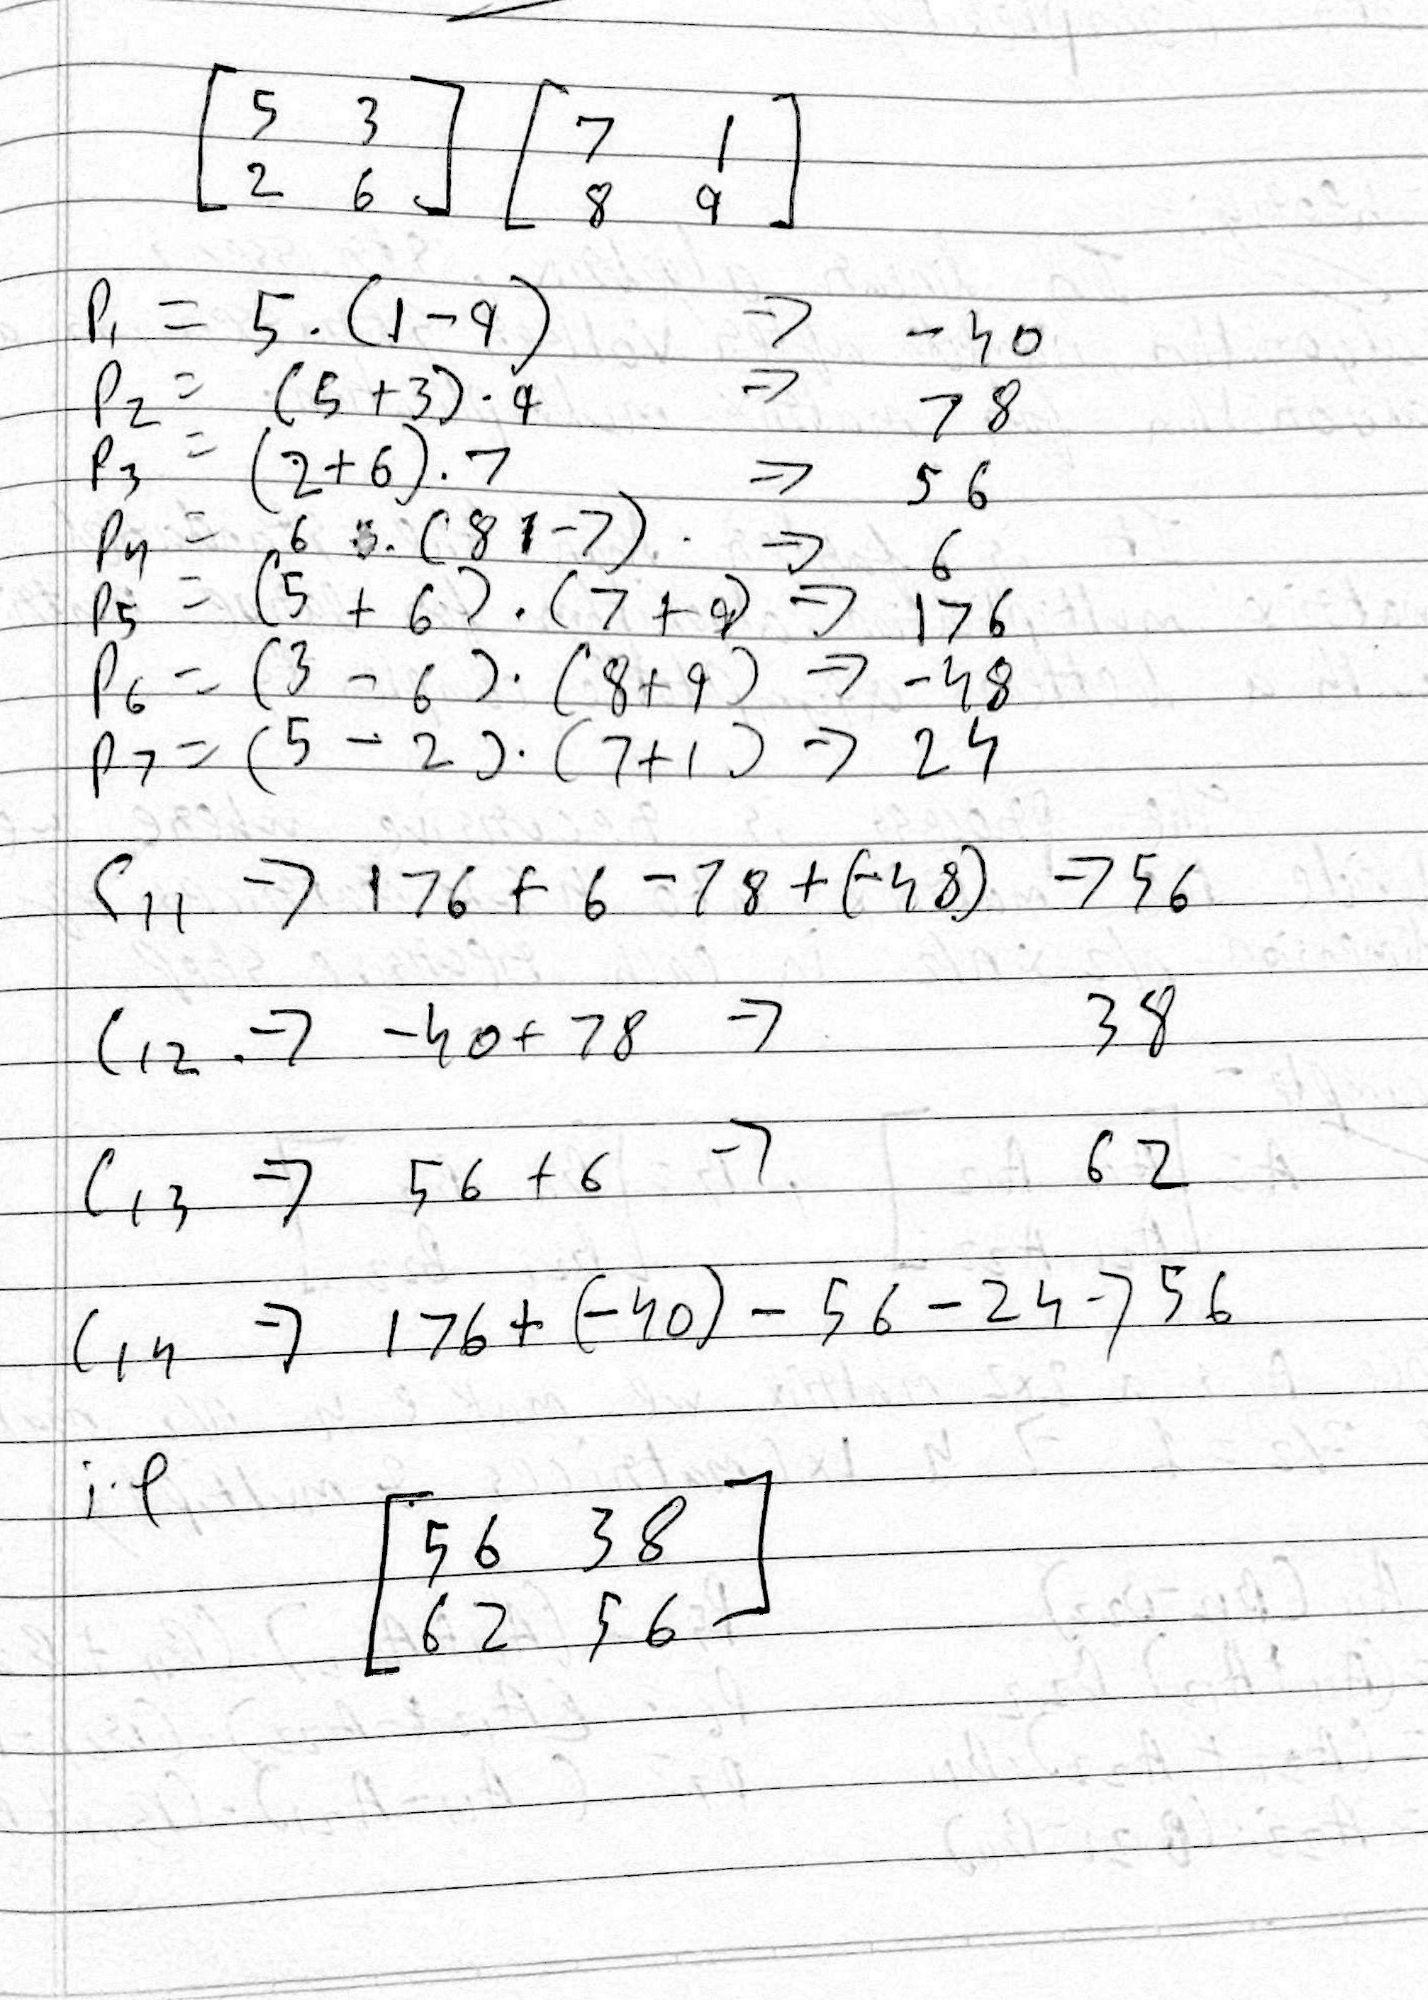 [5 3] [7 1]
[2 6] [8 9]
P1 = 5.(1-9) => -40
P2 = (5+3).9 => 78
P3 = (2+6).7 => 56
P4 = 6 .(8 1-7). => 6
P5 = (5+6).(7+9) => 176
P6 = (3-6).(8+9) => -48
P7 = (5-2).(7+1) => 24
C11 => 176+6-78+(-48) => 56
C12 => -40+78 => 38
C13 => 56+6 => 62
C14 => 176+(-40)-56-24 => 56
i.e
[56 38]
[62 56]